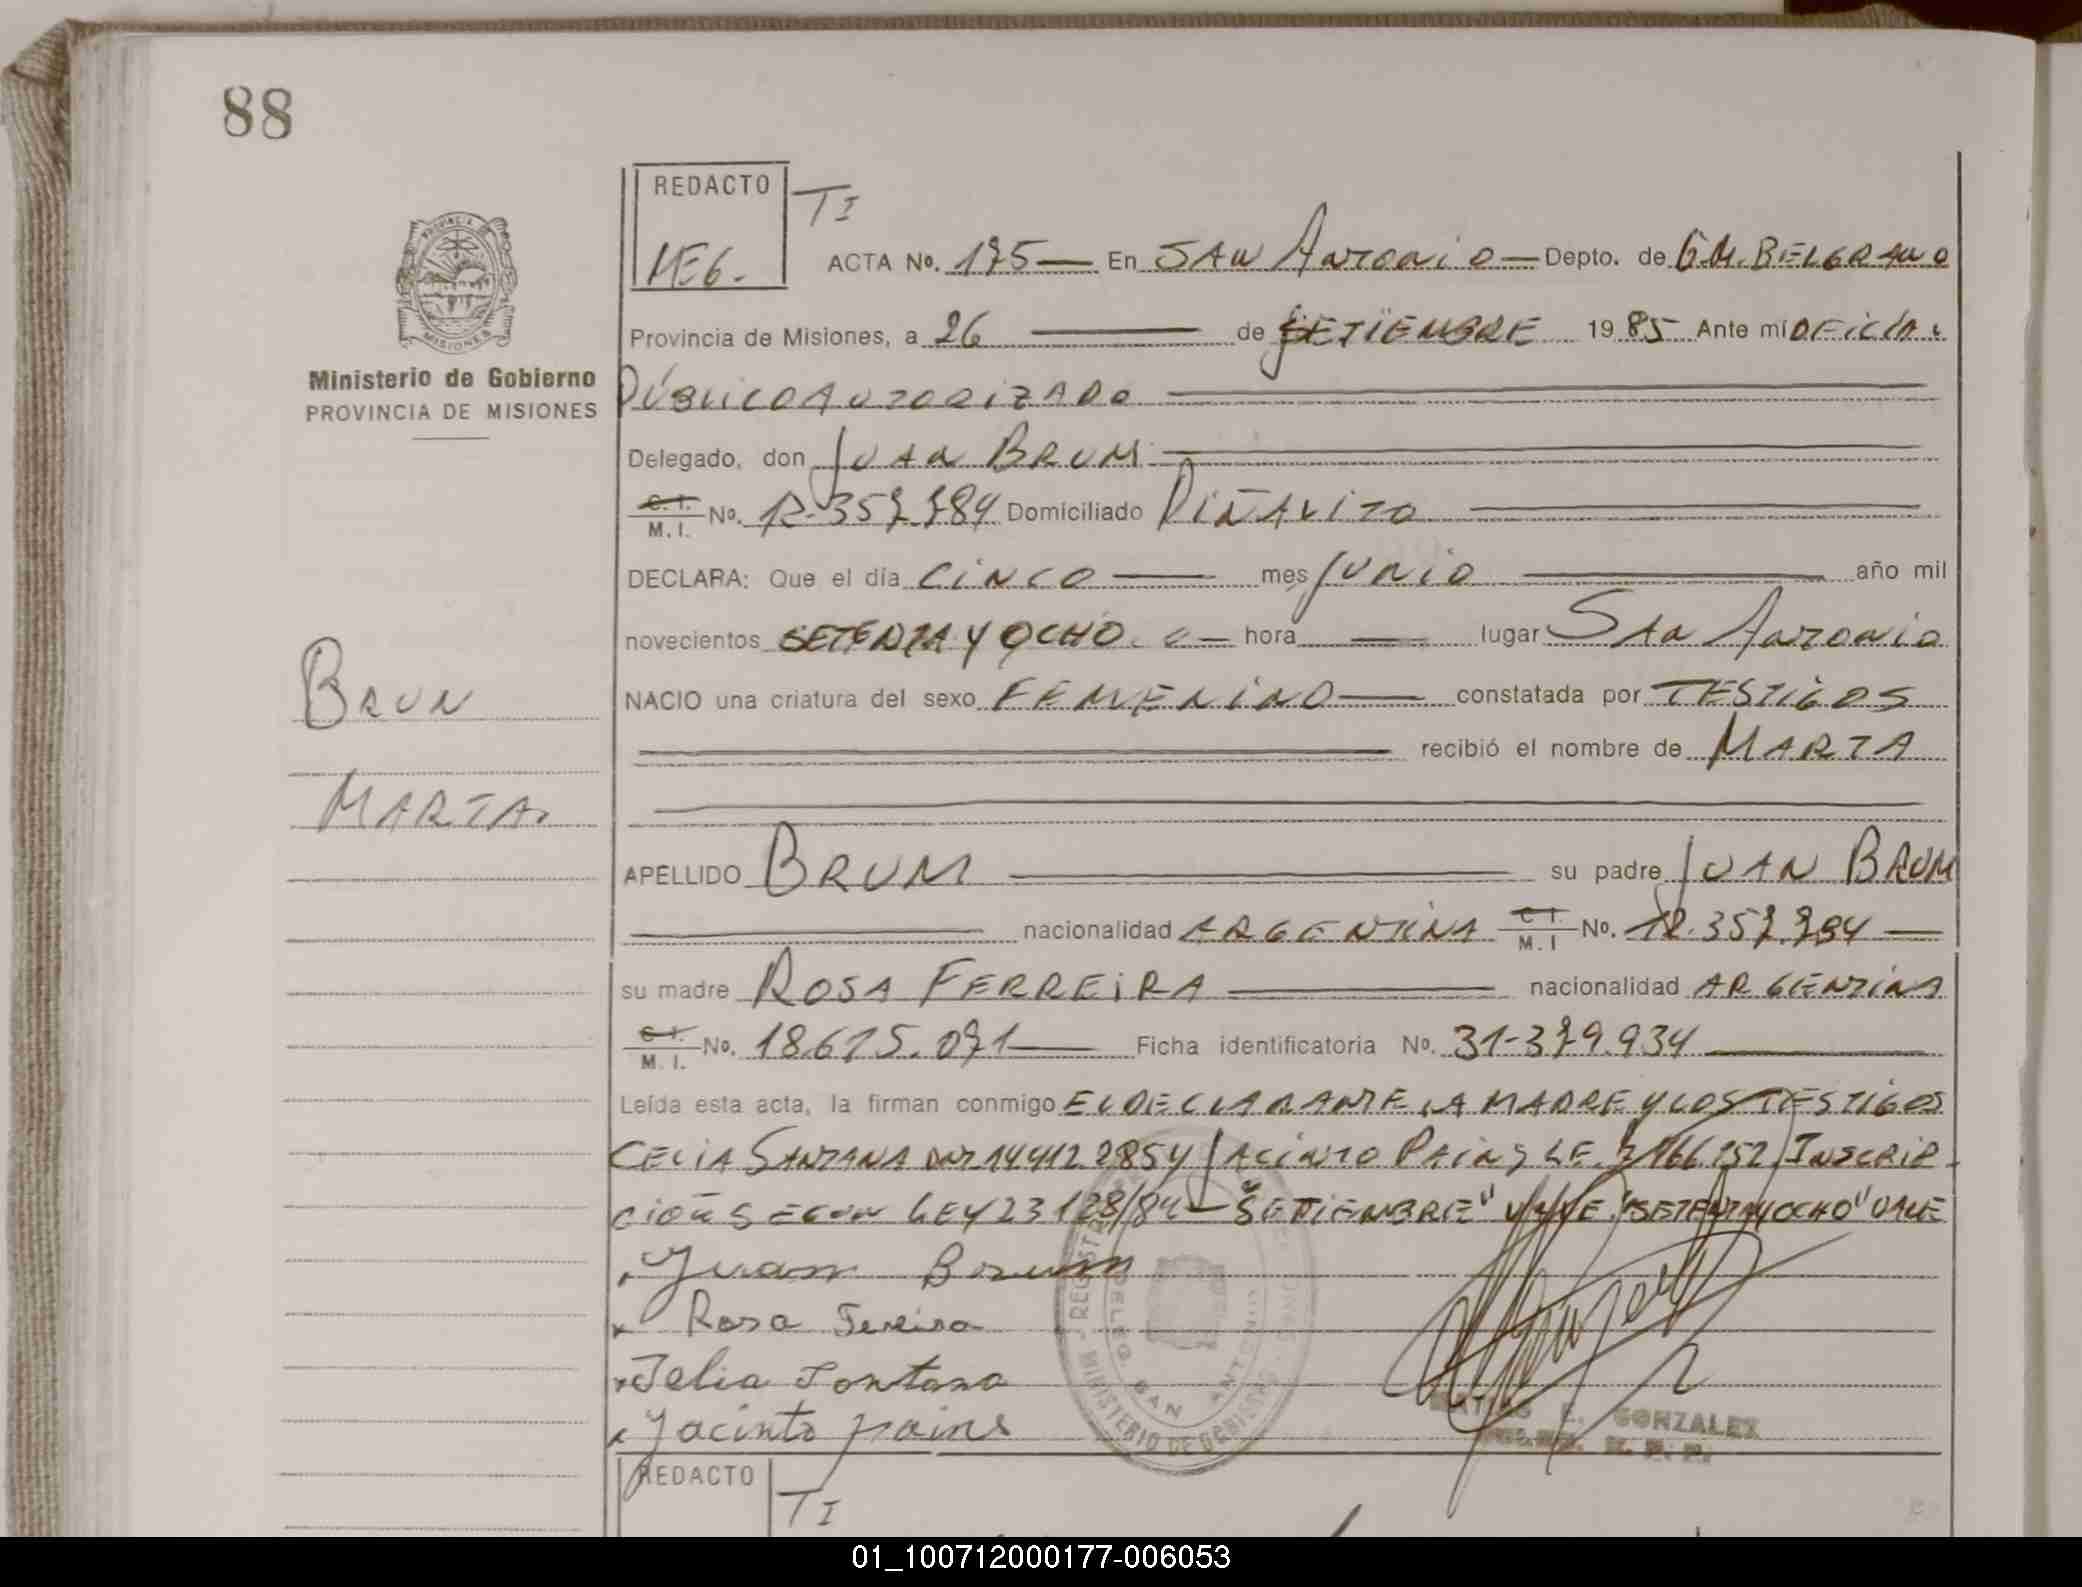 88
REDACTO
TI
MEG.
ACTA No. 175 En SAN ANTONIO Depto. de G.M. BELGRANO
Provincia de Misiones, a 26 de SETIEMBRE 1985 Ante mi OFICIAL
PÚBLICO AUTORIZADO
Delegado, don JUAN BRUM
C. I. / M. I. No. 12.357.784 Domiciliado PIÑALITO
DECLARA: Que el día CINCO mes JUNIO año mil
novecientos SETENTA Y OCHO hora lugar SAN ANTONIO
NACIO una criatura del sexo FEMENINO constatada por TESTIGOS
recibió el nombre de MARTA
APELLIDO BRUM su padre JUAN BRUM
nacionalidad ARGENTINA C. I. / M. I No. 12.357.784
su madre ROSA FERREIRA nacionalidad ARGENTINA
C. I. / M. I. No. 18.615.071 Ficha identificatoria No. 31-379.934
Leída esta acta, la firman conmigo EL DECLARANTE LA MADRE Y LOS TESTIGOS
CELIA SANTANA DNI 14412.2854 JACINTO PAINS LE. 7166.152 INSCRIP-
CIÓN SEGUN LEY 23128/84 - "SETIEMBRE" VALE. "SETENTA Y OCHO" VALE
Juan Brum
x Rosa Fereira
x Selia Santana
x Jacinto pains
REGISTR
DELEG. SAN ANTONIO
MINISTERIO DE GOBIERNO
GONZALEZ
Ministerio de Gobierno
PROVINCIA DE MISIONES
PROVINCIA DE
MISIONES
BRUN
MARTA.
REDACTO
TI
01_100712000177-006053